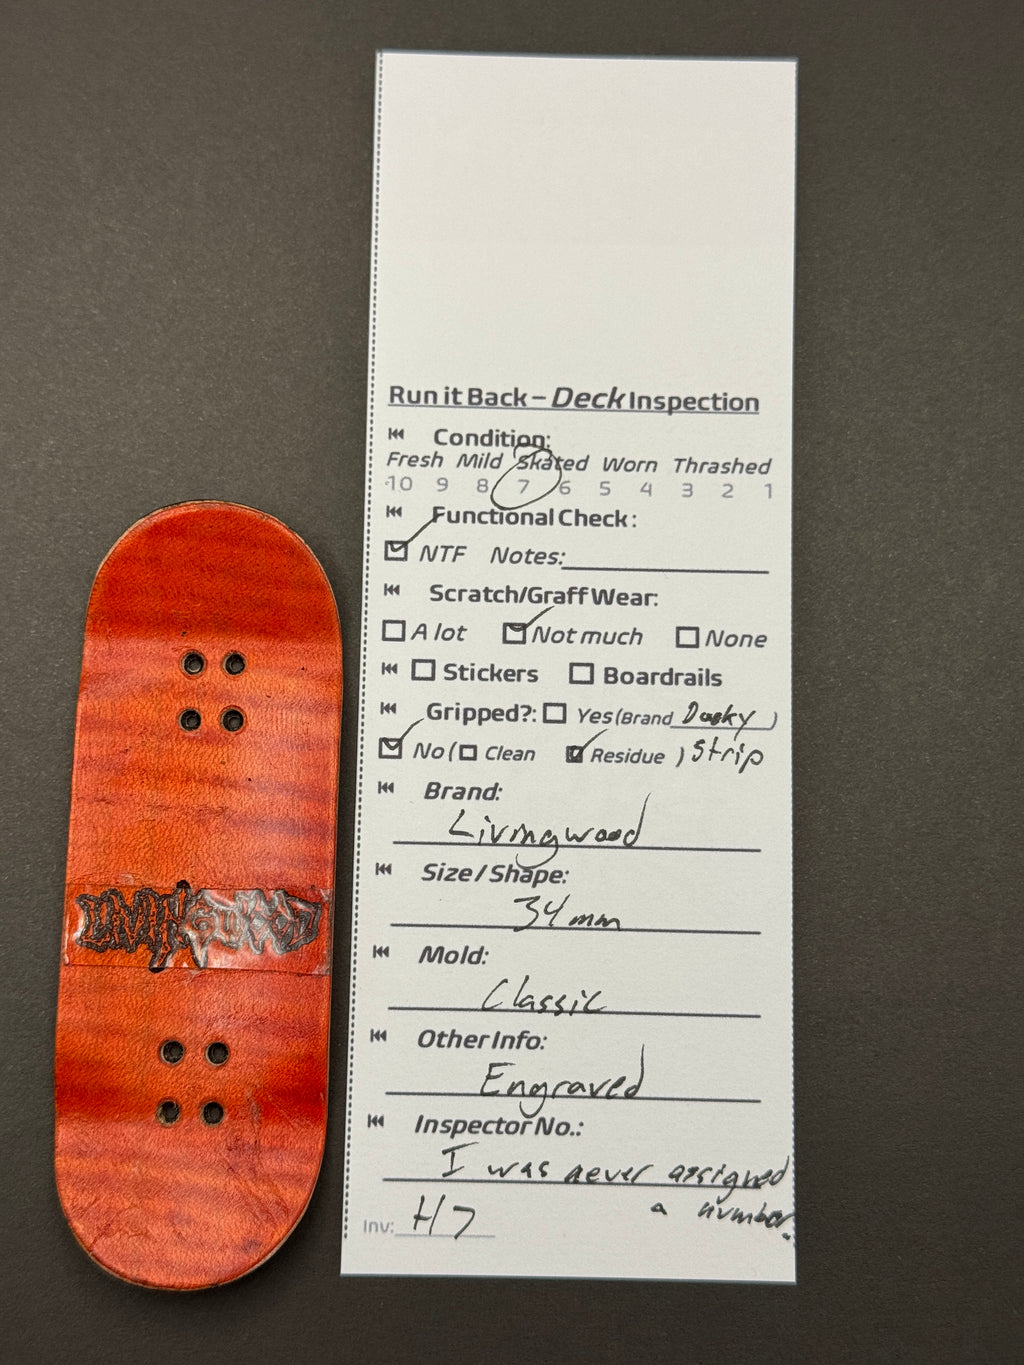 Run it Back – Deck Inspection
Condition:
Fresh Mild Skated Worn Thrashed
10 9 8 7 6 5 4 3 2 1
Functional Check:
NTF Notes:
Scratch/Graff Wear:
A lot Not much None
Stickers Boardrails
Gripped?: Yes (Brand Dusky )
No ( Clean Residue ) Strip
Brand:
Livingwood
Size / Shape:
34mm
Mold:
Classic
Other Info:
Engraved
Inspector No.:
I was never assigned
a number.
Inv: H7
LIVINGWOOD